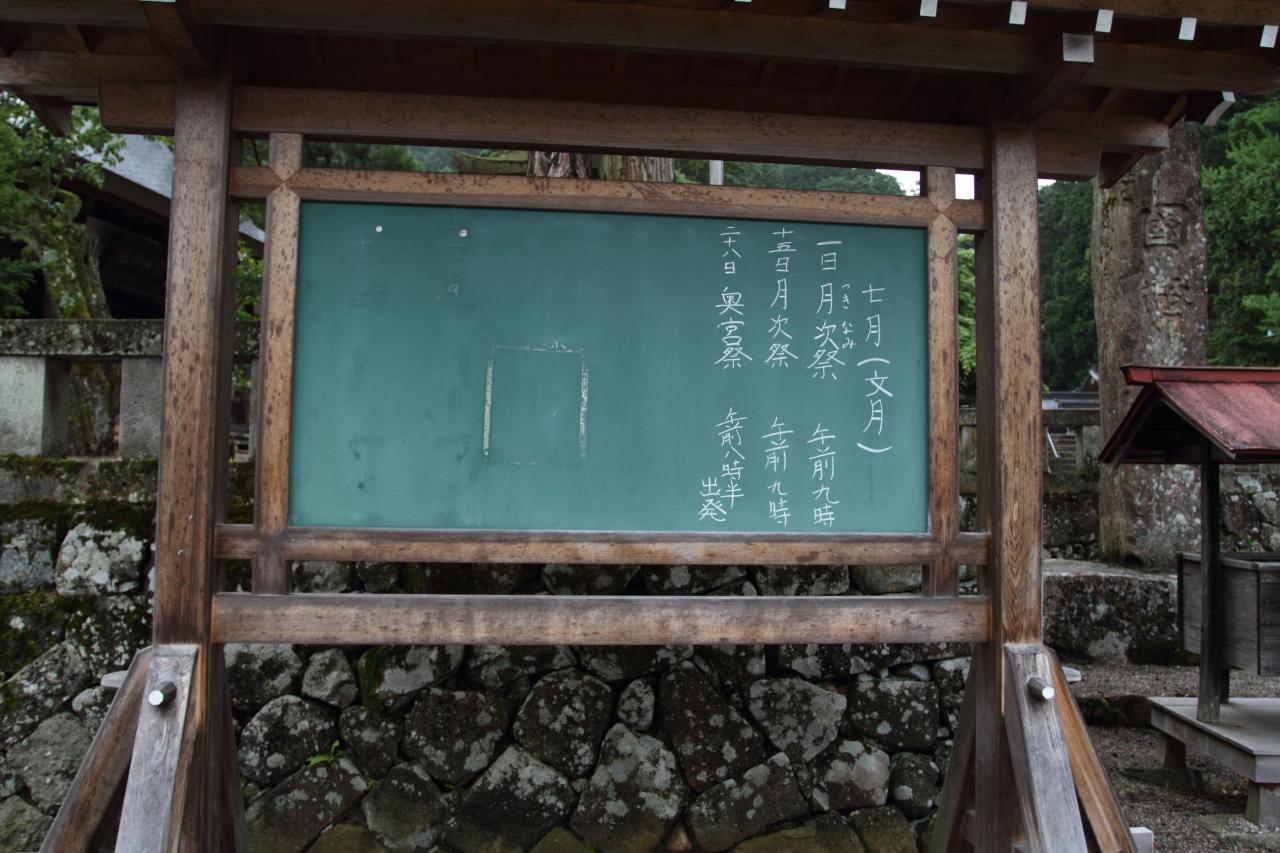 七月(文月)
一日 月次祭 午前九時
つきなみ
十五日 月次祭 午前九時
二十八日 奥宮祭 午前八時半
出発